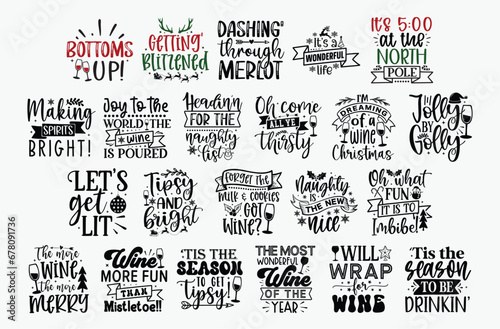 BOTTOMS
UP!
GETTING
BLITZENED
DASHING
through
MERLOT
It's a
WONDERFUL
life
It's 5:00
at the
NORTH
POLE
Making
SPIRITS
BRIGHT!
Joy to the
WORLD THE
wine
IS POURED
Headin'
FOR THE
naughty
list
Oh come
ALL YE
thirsty
I'M
DREAMING
of a
WINE
Christmas
In
Jolly
BY
Golly
LET'S
get
LIT
Tipsy
AND
bright
FORGET THE
MILK & COOKIES
GOT
WINE?
Naughty
IS THE NEW
nice
Oh what
FUN
IT IS TO
Imbibe!
The more
WINE
the more
MERRY
Wine
MORE FUN
THAN
Mistletoe!!
'TIS THE
SEASON
TO GET
tipsy!
THE MOST
WONDERFUL
Wine
OF THE
YEAR
I WILL
WRAP
for
WINE
'Tis the
season
TO BE
DRINKIN'
Adobe Stock | #678091736